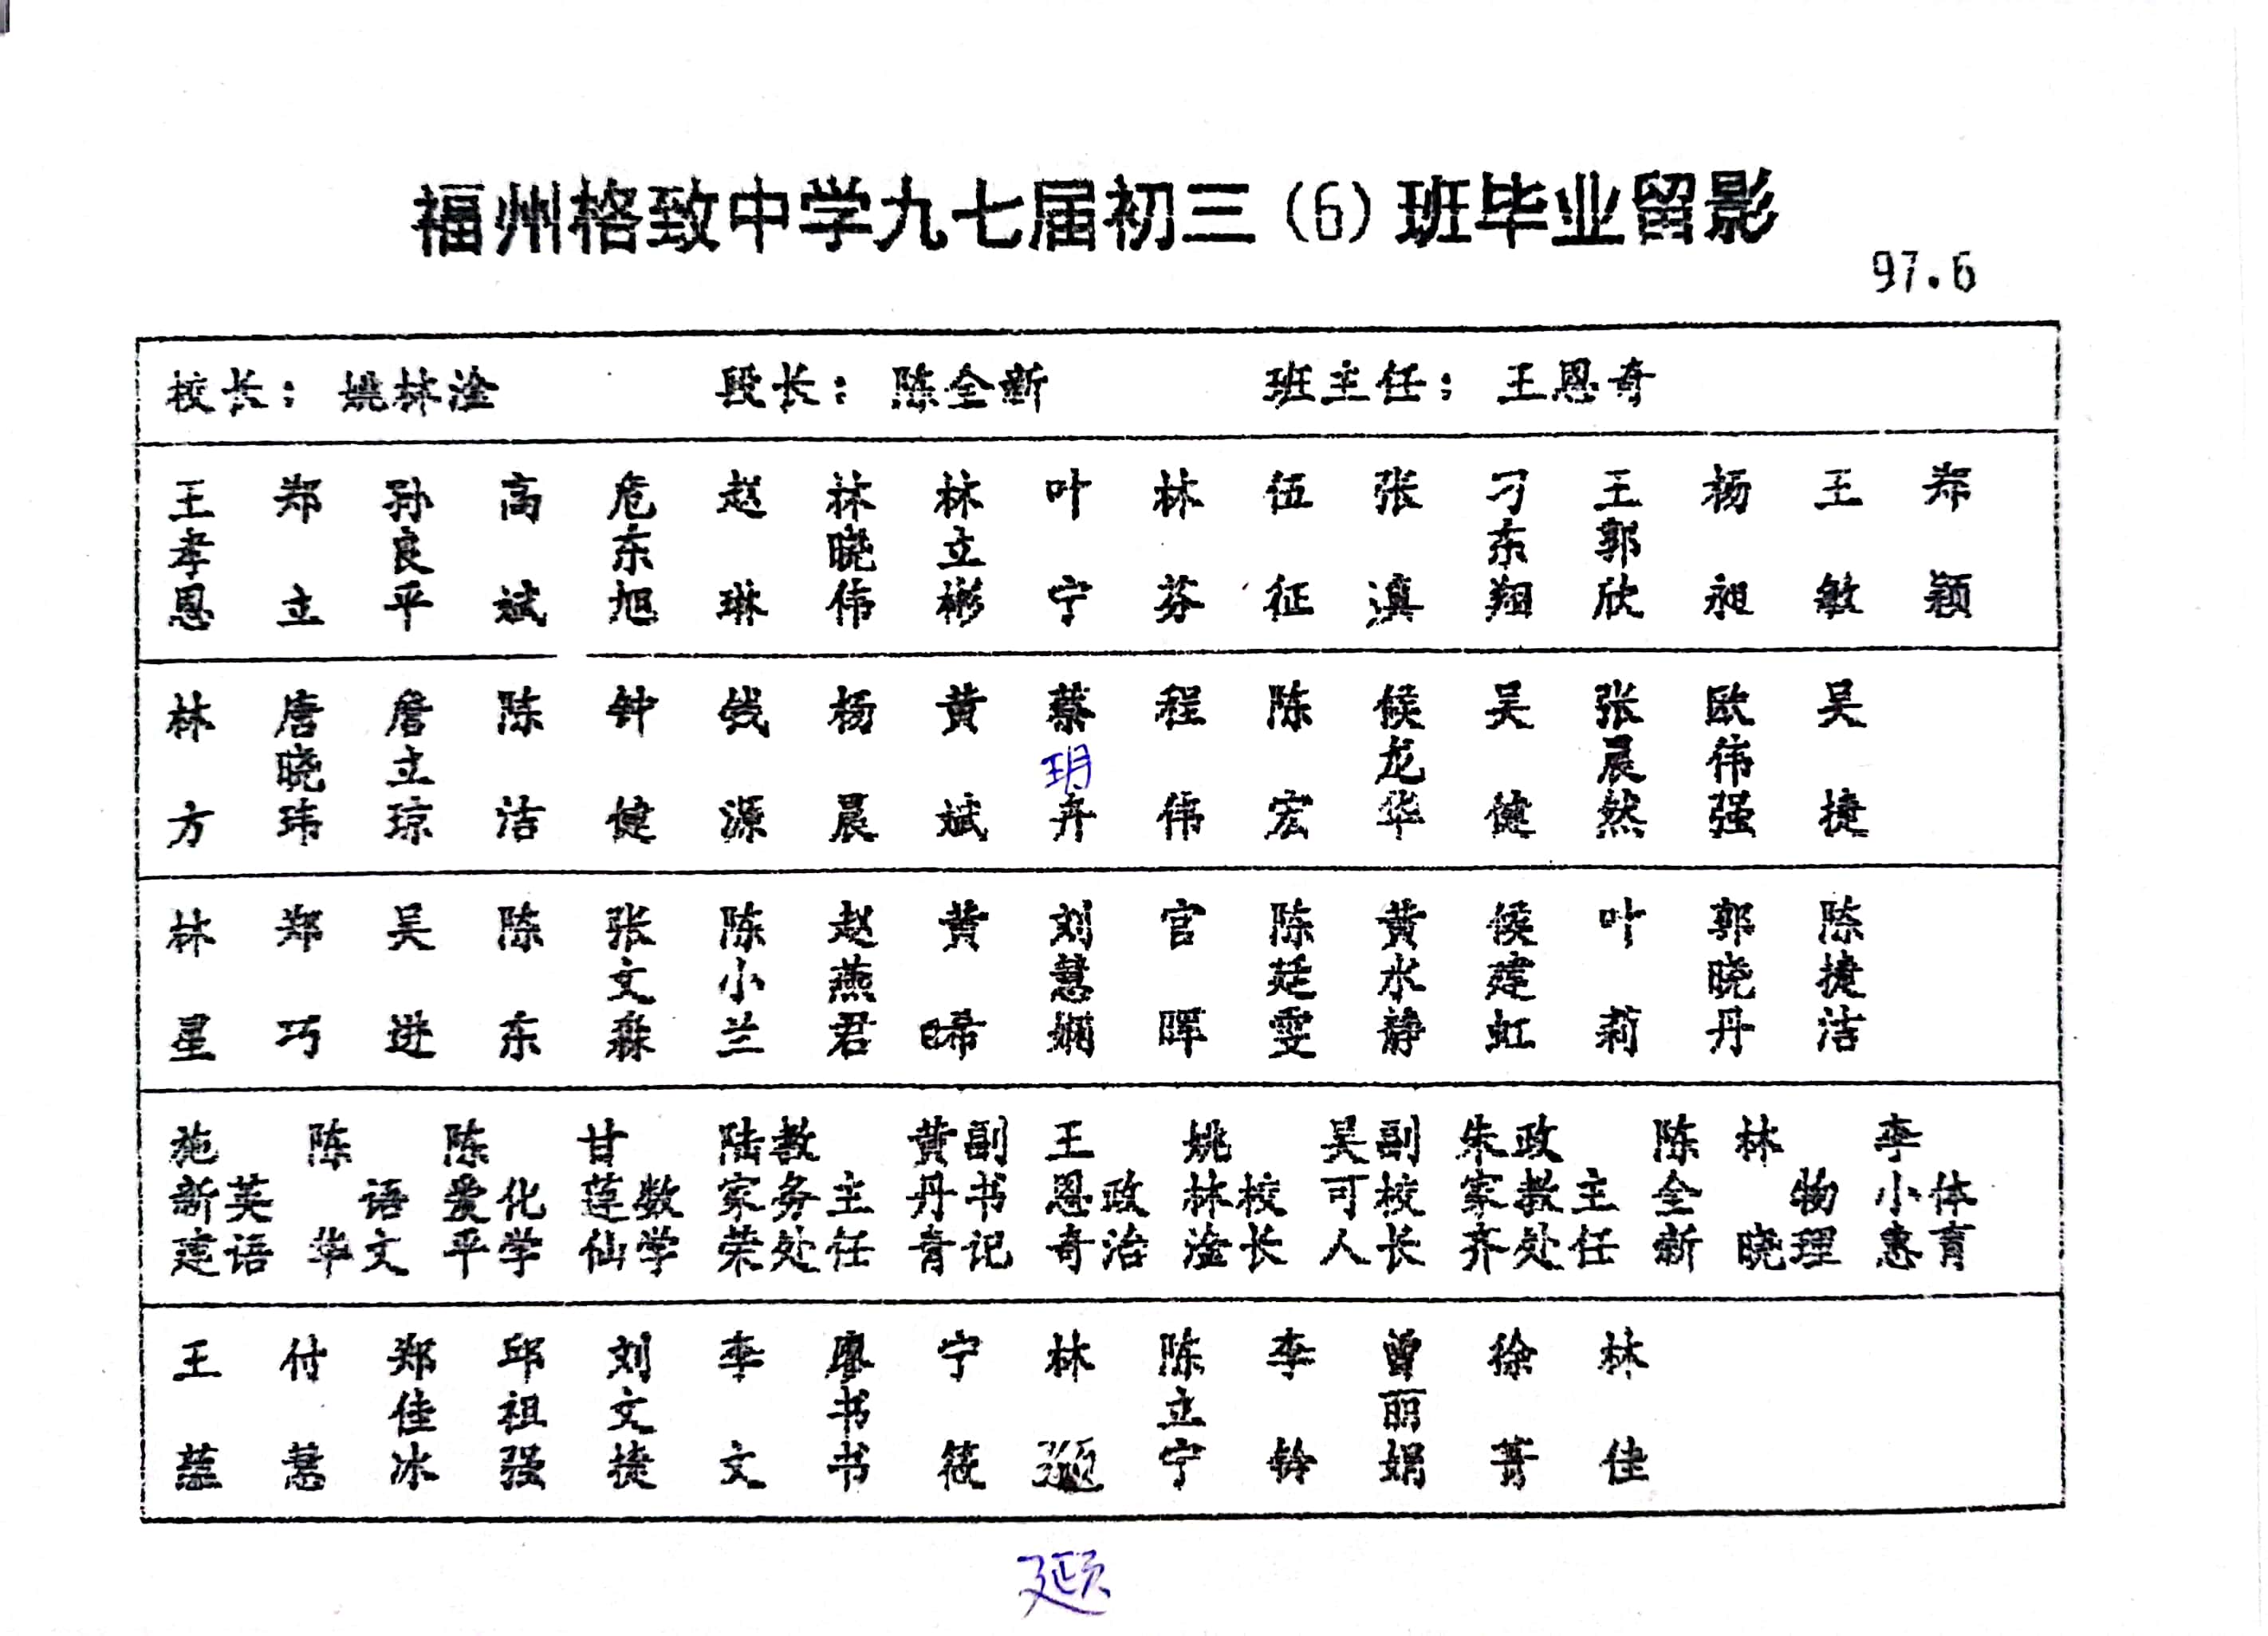 福州格致中学九七届初三(6)班毕业留影
97.6
校长：姚林淦 段长：陈全新 班主任：王恩奇
王孝恩 郑立 孙良平 高斌 危东旭 赵琳 林晓伟 林立彬 叶宁 林芬 伍征 张滇 刁东翔 王郭欣 杨昶 王敏 郑颖
林方 唐晓玮 詹立琼 陈洁 钟健 钱源 杨晨 黄斌 蔡玥丹 程伟 陈宏 候龙华 吴健 张晨然 欧伟强 吴捷
林星 郑巧 吴进 陈东 张文淼 陈小兰 赵燕君 黄晞 刘慧娴 官晖 陈莛雯 黄水静 候建虹 叶莉 郭晓丹 陈捷洁
施新建英语 陈华语文 陈爱平化学 甘莲仙数学 陆家荣教务处主任 黄丹青副书记 王恩奇政治 姚林淦校长 吴可人副校长 朱家齐政教处主任 陈全新 林晓物理 李小惠体育
王蕴 付慧 郑佳冰 邱祖强 刘文捷 李文 廖书书 宁筱 林 陈立宁 李铃 曾丽娟 徐菁 林佳